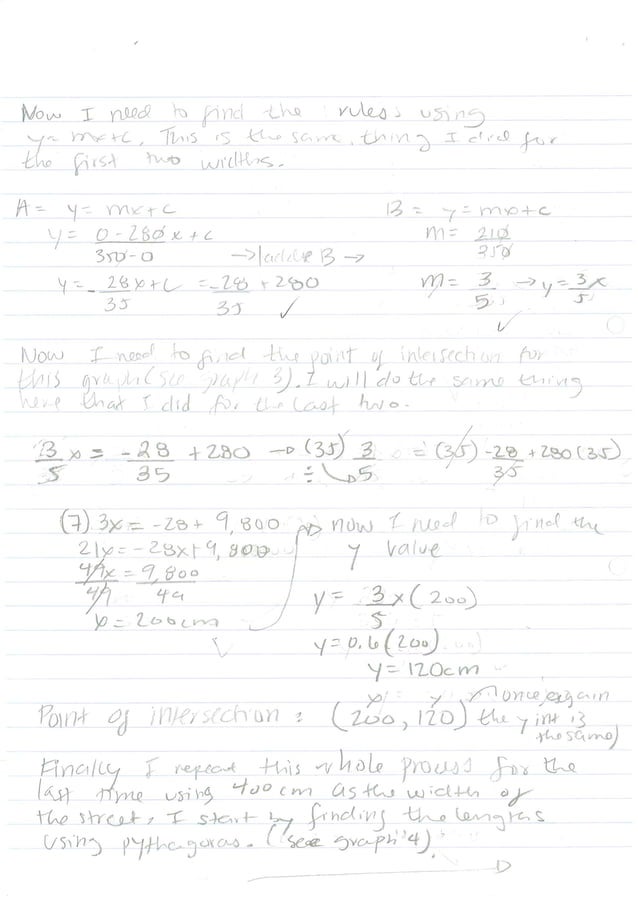 Now I need to find the rules using
y= mx+c, This is the same thing I did for
the first two widths.
A = y= mx+c
B = y=mx+c
y= 0-280x+c
350-0
m= 210
350
→ ladder B →
y= - 28x+c = -28 + 280
35 35 ✓
m= 3 → y= 3x
5 5
✓
Now I need to find the point of intersection for
this graph (see graph 3). I will do the same thing
here that I did for the last two.
3 x = -28 + 280 → (35) 3 = (35) -28 + 280 (35)
5 35 ÷ 5 35
(7) 3x = -28 + 9,800 → now I need to find the
21x = -28x + 9,800 y value
49x = 9,800
49 49
x = 200cm
y = 3 x (200)
5
y = 0.6 (200)
y = 120cm
Point of intersection : (200, 120)
x y
once again
the y int is
the same)
Finally I repeat this whole process for the
last time using 400 cm as the width of
the street, I start by finding the lengths
using pythagoras. (see graph 4).